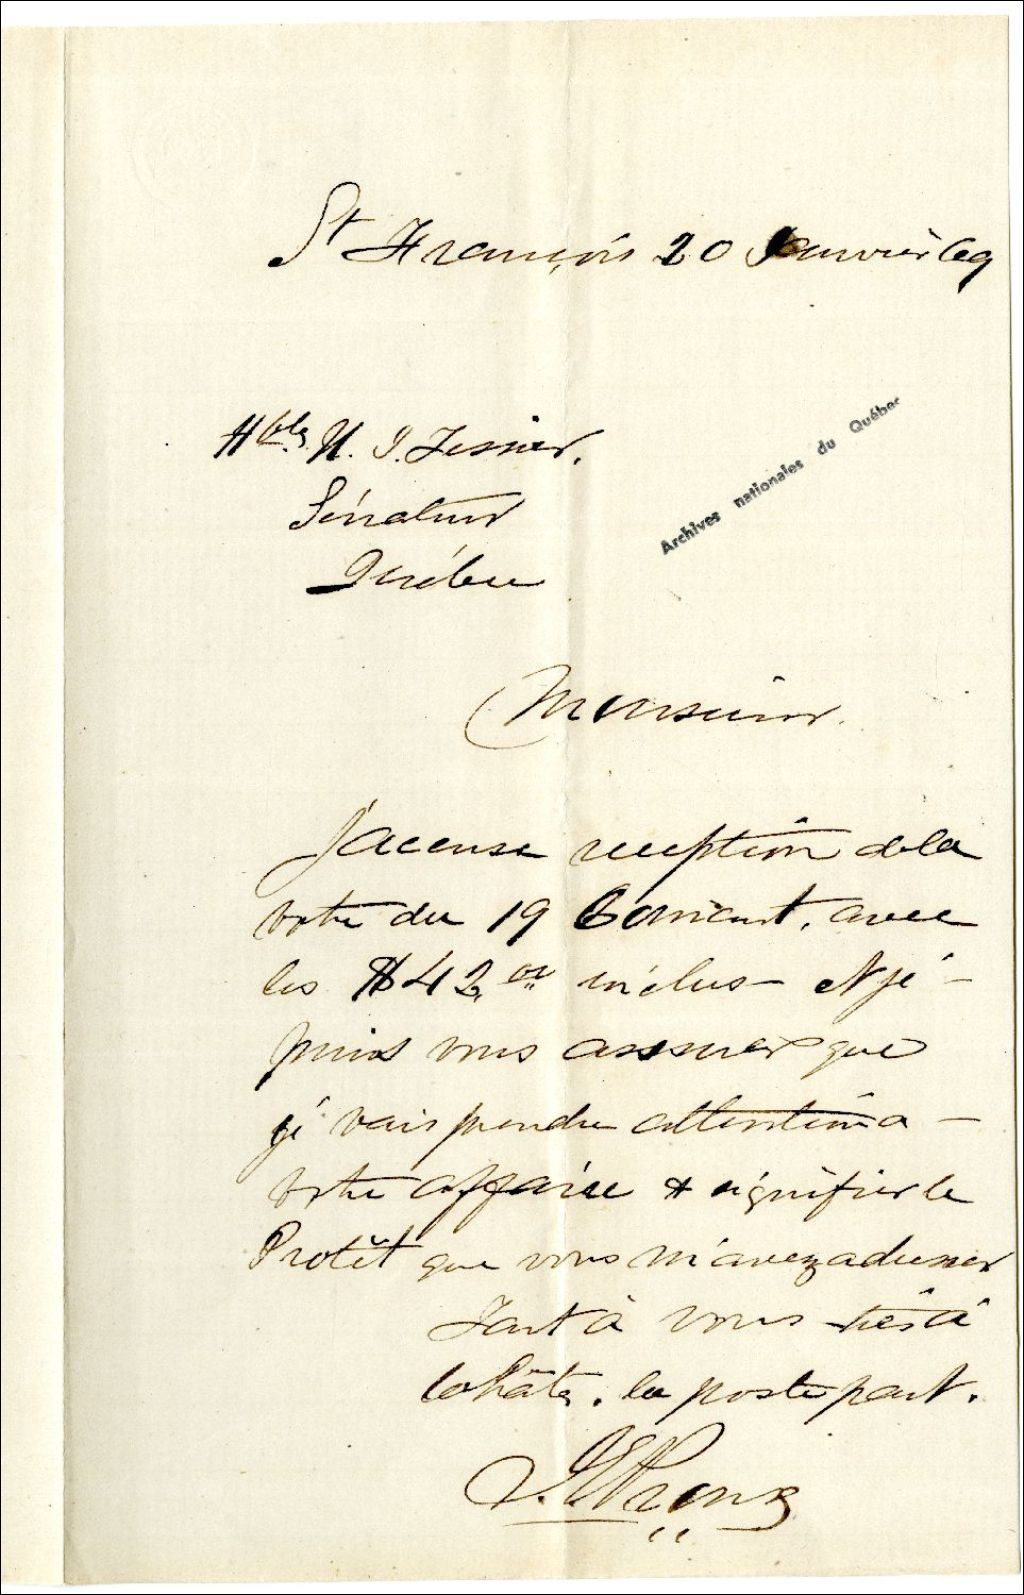 St François 20 Janvier 69
Hble U. J. Tessier.
Sénateur
Québec
Archives nationales du Québec
Monsieur.
J'accuse reception de la
votre du 19 Courant. avec
les $42.00 inclus — & je —
puis vous assurer que
je vais prendre attention a —
votre affaire & signifier le
Protêt que vous m'avez adresser
Tout à vous très à
la hâte. la poste part.